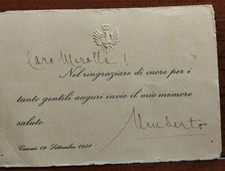 Caro Morolla !
Nel ringraziare di cuore per i
tanto gentili auguri invio il mio memore
saluto
Umberto
Cascais 19 Settembre 1951